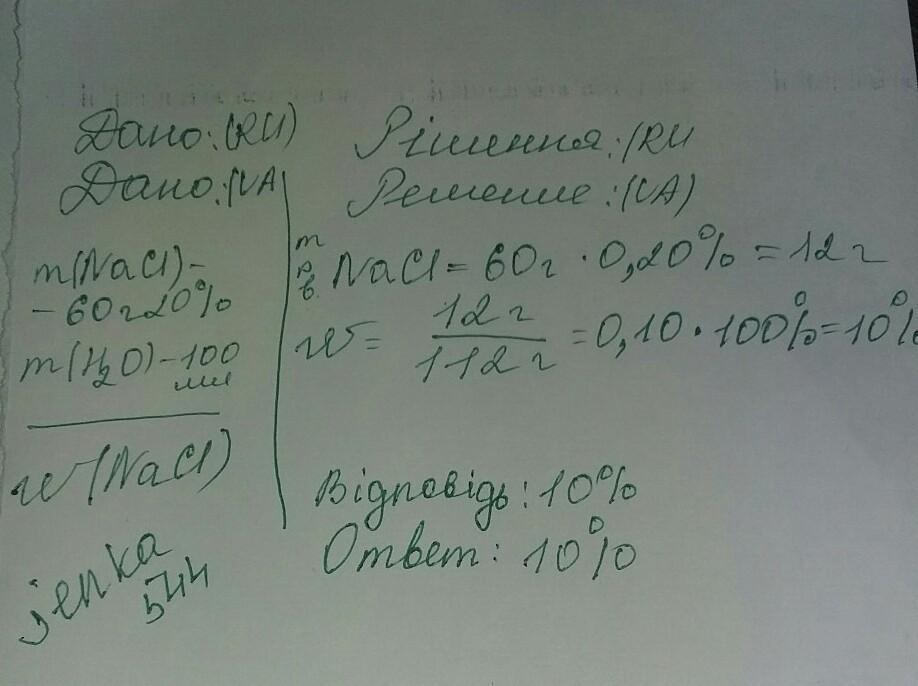 Дано:(RU)
Дано:(UA)
m(NaCl)-
-60г20%
m(H₂O)-100
мл
w(NaCl)
jenka
544
Рішення:(RU
Решение:(UA)
m р.в. NaCl=60г·0,20%=12г
w= 12г/112г=0,10·100%=10%
Відповідь:10%
Ответ: 10%